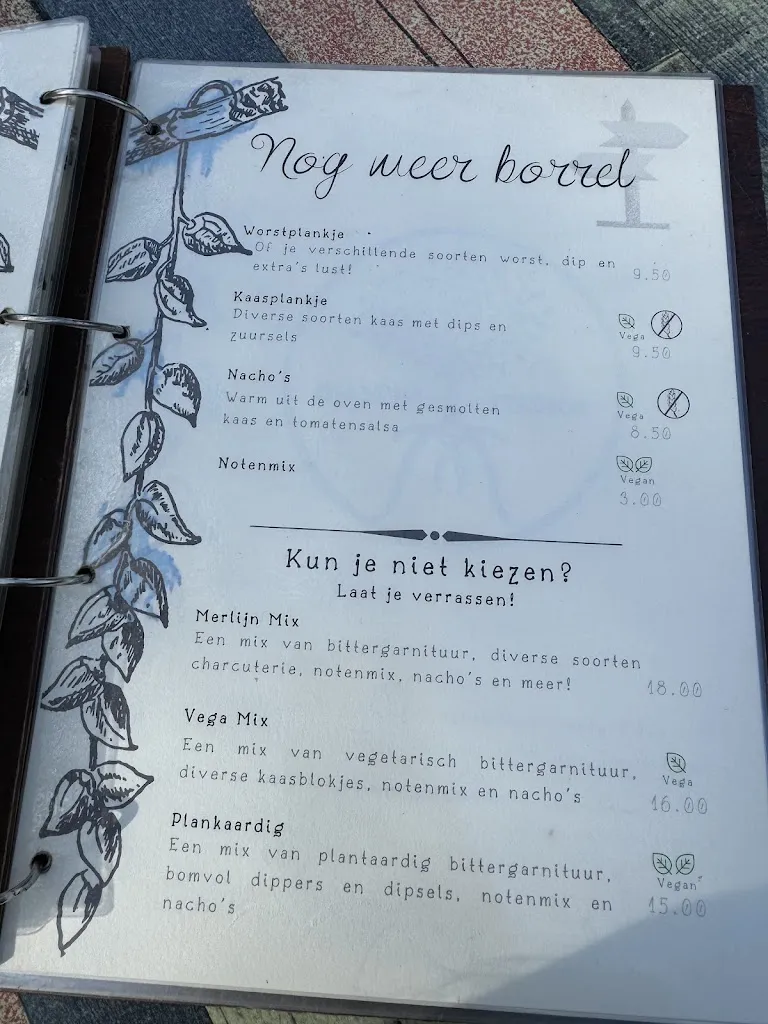 Nog meer borrel
Worstplankje
Of je verschillende soorten worst, dip en
extra's lust!
9.50
Kaasplankje
Diverse soorten kaas met dips en
zuursels
Vega
9.50
Nacho's
Warm uit de oven met gesmolten
kaas en tomatensalsa
Vega
8.50
Notenmix
Vegan
3.00
Kun je niet kiezen?
Laat je verrassen!
Merlijn Mix
Een mix van bittergarnituur, diverse soorten
charcuterie, notenmix, nacho's en meer!
18.00
Vega Mix
Een mix van vegetarisch bittergarnituur,
diverse kaasblokjes, notenmix en nacho's
Vega
16.00
Plankaardig
Een mix van plantaardig bittergarnituur,
bomvol dippers en dipsels, notenmix en
nacho's
Vegan
15.00